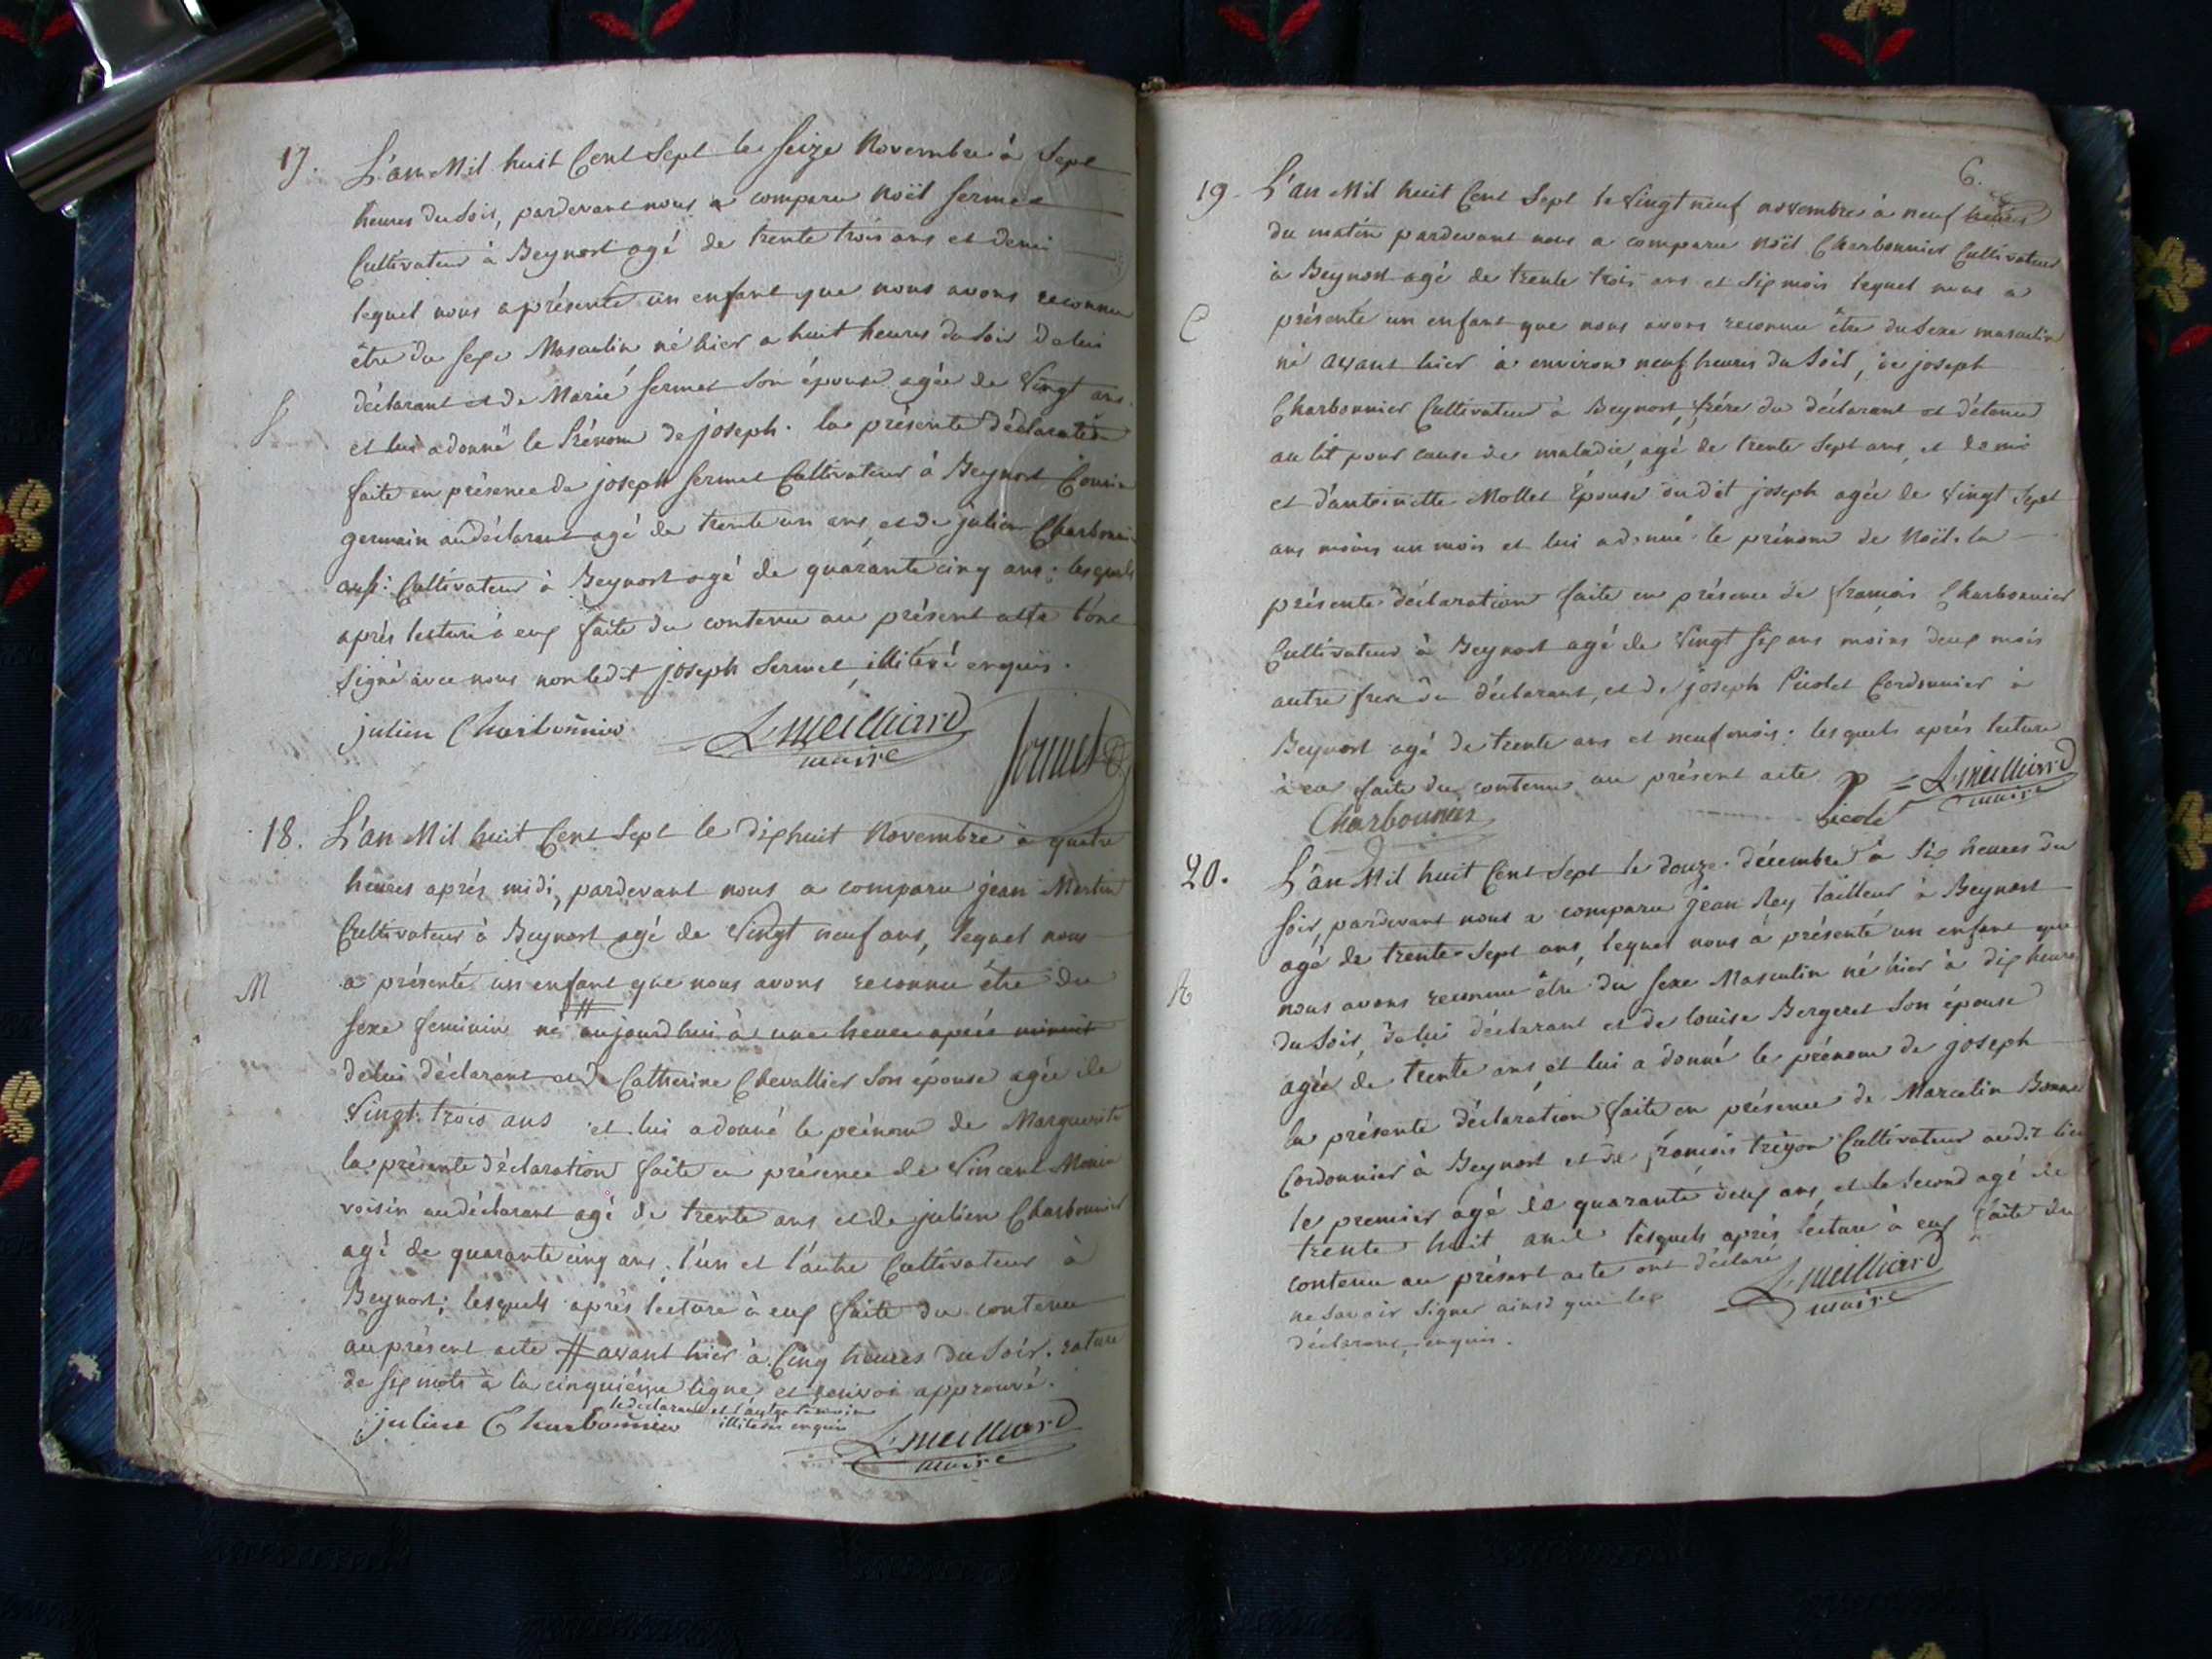 17. L'an Mil huit Cent Sept le seize Novembre à Sept
heures du Soir, pardevant nous a comparu Noël Sermet
Cultivateur à Beynost agé de trente trois ans et demi
lequel nous a présenté un enfant que nous avons reconnu
être du sexe Masculin né hier a huit heures du Soir de lui
déclarant et de Marie Sermet Son épouse agée de Vingt ans
S
et lui a donné le Prénom de joseph. la présente déclaration
faite en présence de joseph Sermet Cultivateur à Beynost Cousin
germain au déclarant agé de trente un ans, et de julien Charbonnier
aussi Cultivateur à Beynost agé de quarante cinq ans; lesquels
après lecture à eux faite du contenu au présent acte l'ont
Signé avec nous non ledit joseph Sermet, illitéré enquis.
julien Charbonnier
L. Meilliard
maire
Sermet
18. L'an Mil huit Cent Sept le dix huit Novembre à quatre
heures après midi, pardevant nous a comparu jean Martin
Cultivateur à Beynost agé de Vingt neuf ans, lequel nous
M
a présenté un enfant que nous avons reconnu être du
sexe feminin né # aujourd'hui à une heure après minuit
de lui déclarant et de Catherine Chevallier Son épouse agée de
Vingt trois ans et lui a donné le prénom de Marguerite
la présente déclaration faite en présence de Vincent
voisin au déclarant agé de trente ans et de julien Charbonnier
agé de quarante cinq ans, l'un et l'autre Cultivateur à
Beynost; lesquels après lecture à eux faite du contenu
au présent acte # avant hier à Cinq heures du Soir. rature
de six mots à la cinquième ligne et renvoi approuvé.
le déclarant et l'autre témoin
illiterés enquis
julien Charbonnier
L. Meilliard
maire
6.
19. L'an Mil huit Cent Sept le Vingt neuf novembre à neuf heures
du matin pardevant nous a comparu Noël Charbonnier Cultivateur
à Beynost agé de trente trois ans et Six mois lequel nous a
C
présenté un enfant que nous avons reconnu être du Sexe masculin
né avant hier à environ neuf heures du Soir, de joseph
Charbonnier Cultivateur à Beynost, frère du déclarant et détenu
au lit pour cause de maladie, agé de trente Sept ans, et demi
et d'antoinette Mollet Épouse dudit joseph agée de Vingt Sept
ans moins un mois et lui a donné le prénom de Noël. la
présente déclaration faite en présence de françois Charbonnier
Cultivateur à Beynost agé de Vingt six ans moins deux mois
autre frere du déclarant, et de joseph Picolet Cordonnier à
Beynost agé de trente ans et neuf mois; lesquels après lecture
à eux faite du contenu au présent acte
Charbonnier
L. Meilliard
maire
20. L'an Mil huit Cent Sept le douze décembre à Six heures du
Soir, pardevant nous a comparu jean Rey tailleur à Beynost
agé de trente Sept ans, lequel nous a présenté un enfant que
R
nous avons reconnu être du sexe Masculin né hier à dix heures
du Soir, de lui déclarant et de louise Bergeret Son épouse
agée de trente ans, et lui a donné le prénom de joseph
la présente déclaration faite en présence de Marcelin
Cordonnier à Beynost et de françois trigon Cultivateur audit lieu
le premier agé de quarante deux ans, et le Second agé de
trente huit ans lesquels après lecture à eux faite du
contenu au présent acte ont déclaré
ne Savoir Signer ainsi que les
déclarant, enquis.
L. Meilliard
maire